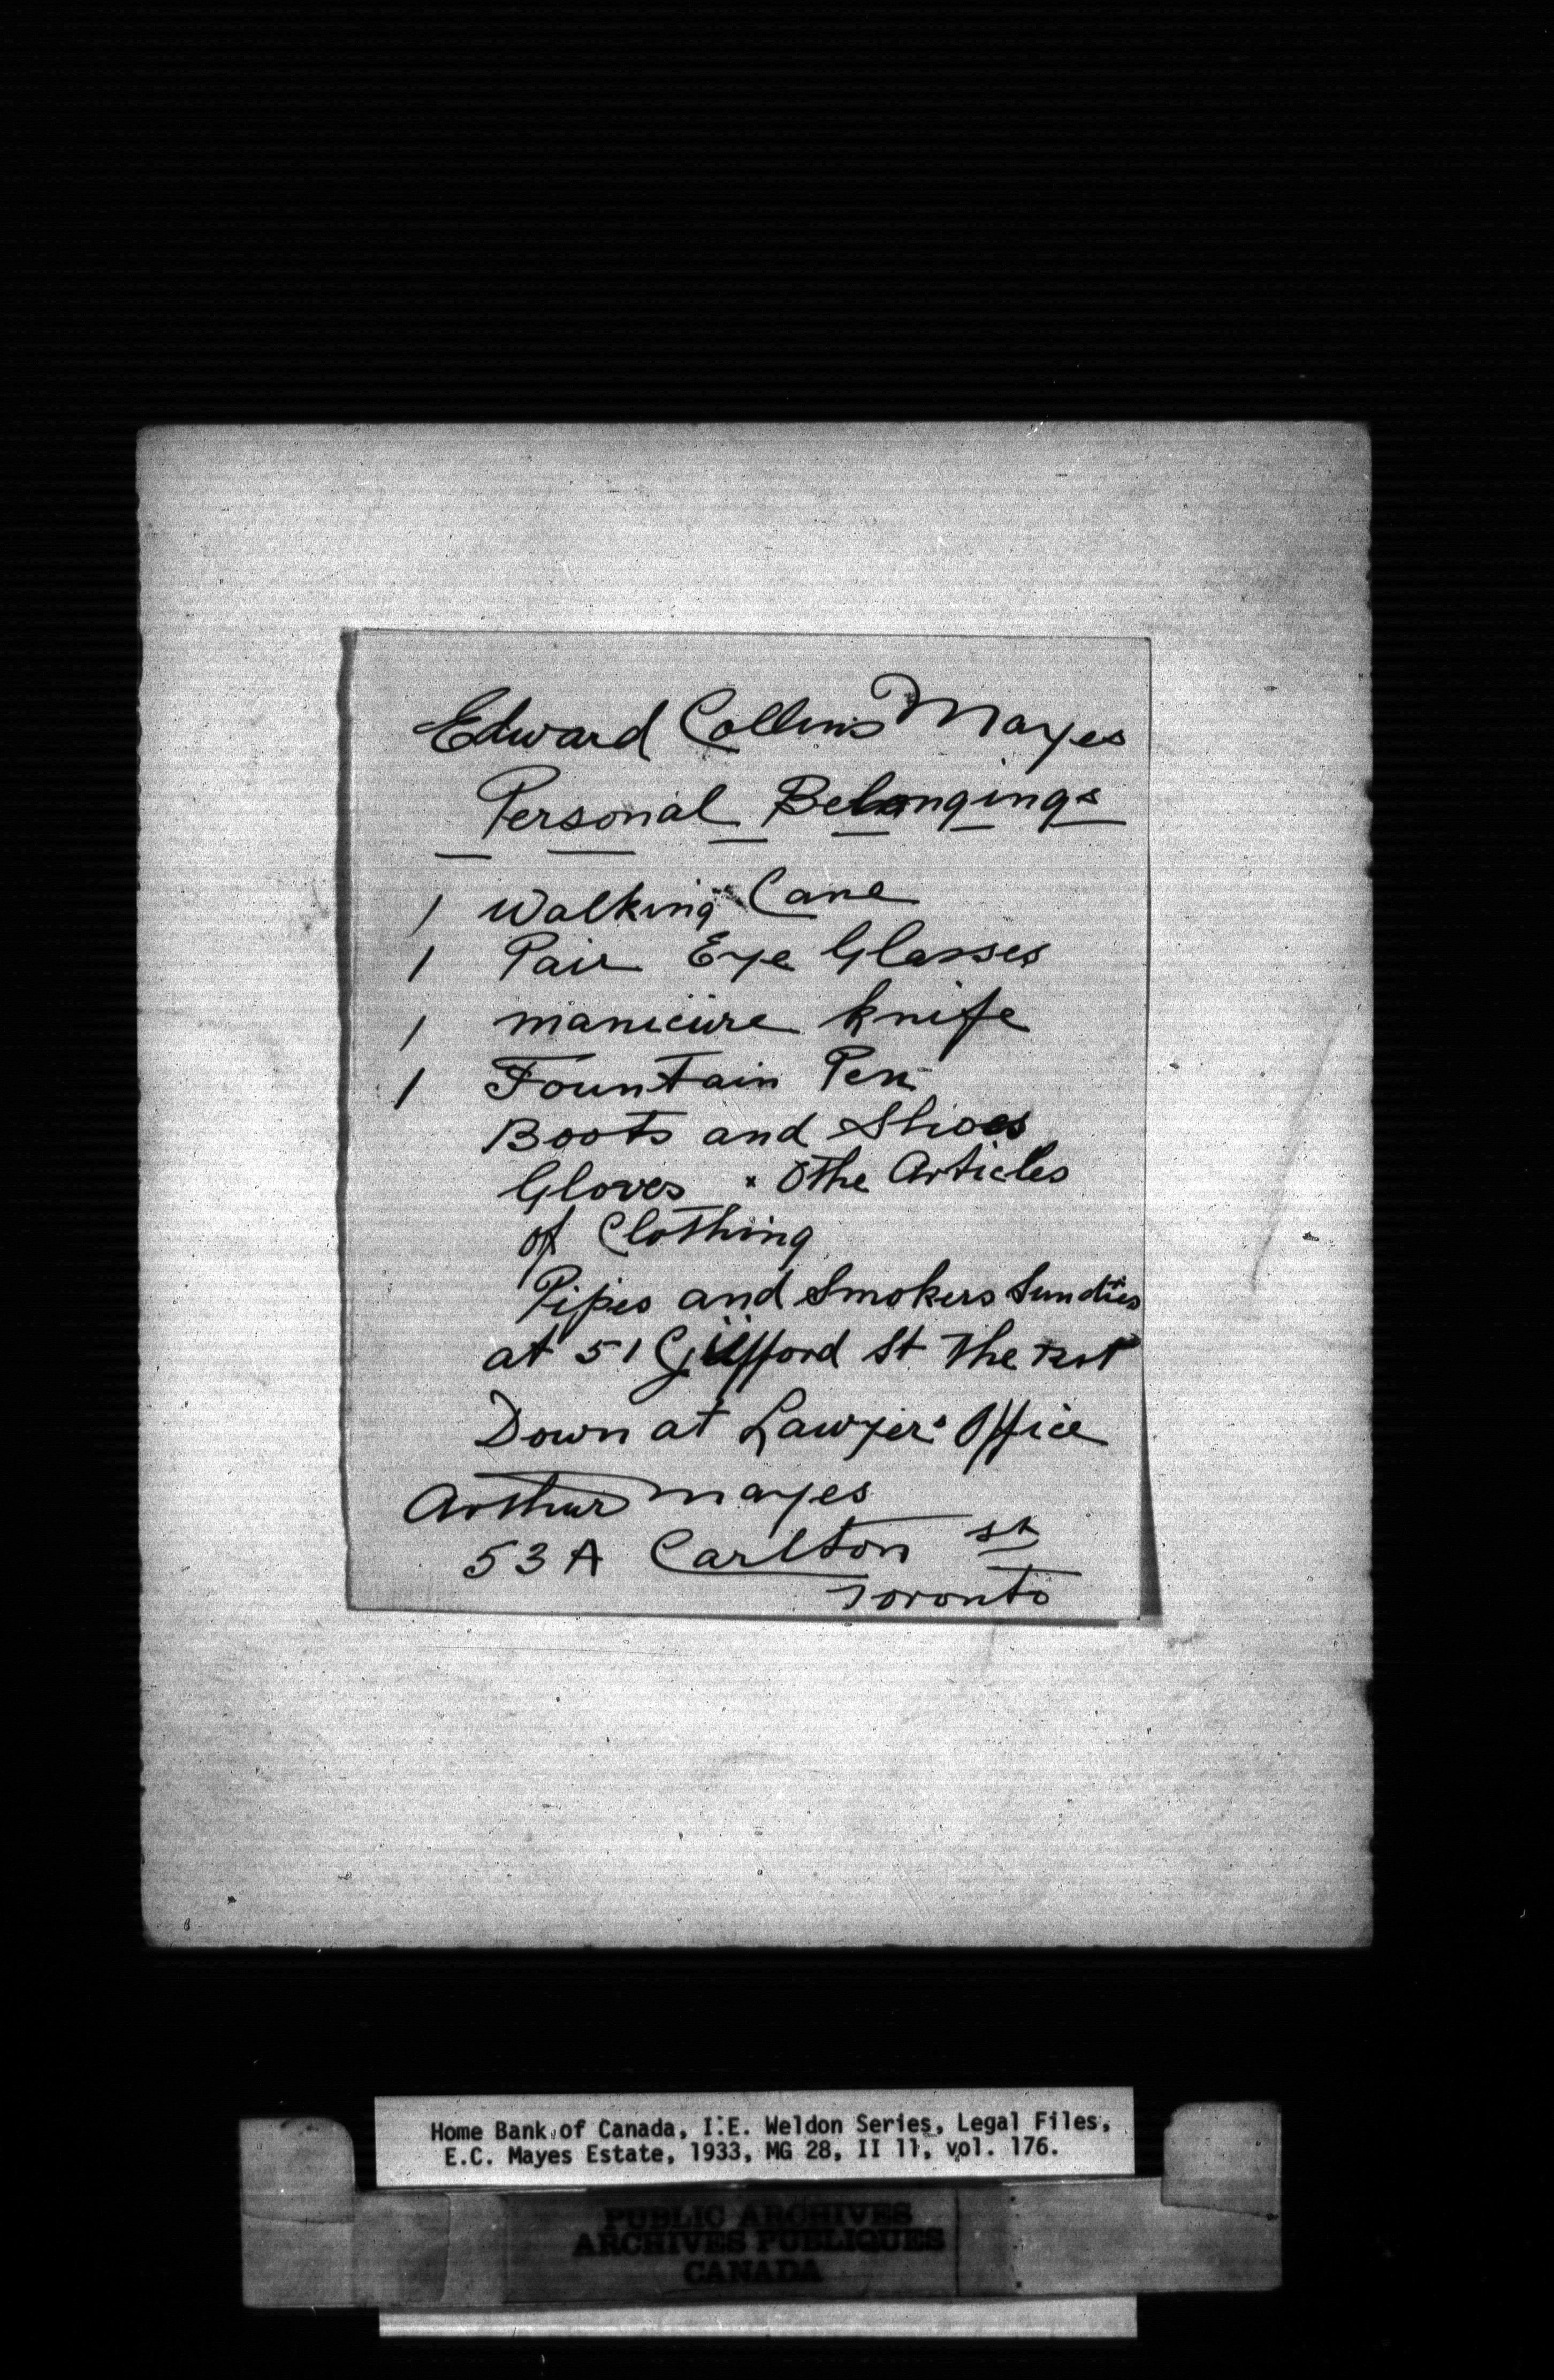 Edward Collins Mayes
Personal Belongings
1 Walking Cane
1 Pair Eye Glasses
1 manicure knife
1 Fountain Pen
Boots and Shoes
Gloves & Othe Articles
of Clothing
Pipes and Smokers Sundies
at 51 Gifford St The rest
Down at Lawyer's Office
Arthur Mayes
53 A Carlton St
Toronto
Home Bank of Canada, I.E. Weldon Series, Legal Files,
E.C. Mayes Estate, 1933, MG 28, II 11, vol. 176.
PUBLIC ARCHIVES
ARCHIVES PUBLIQUES
CANADA